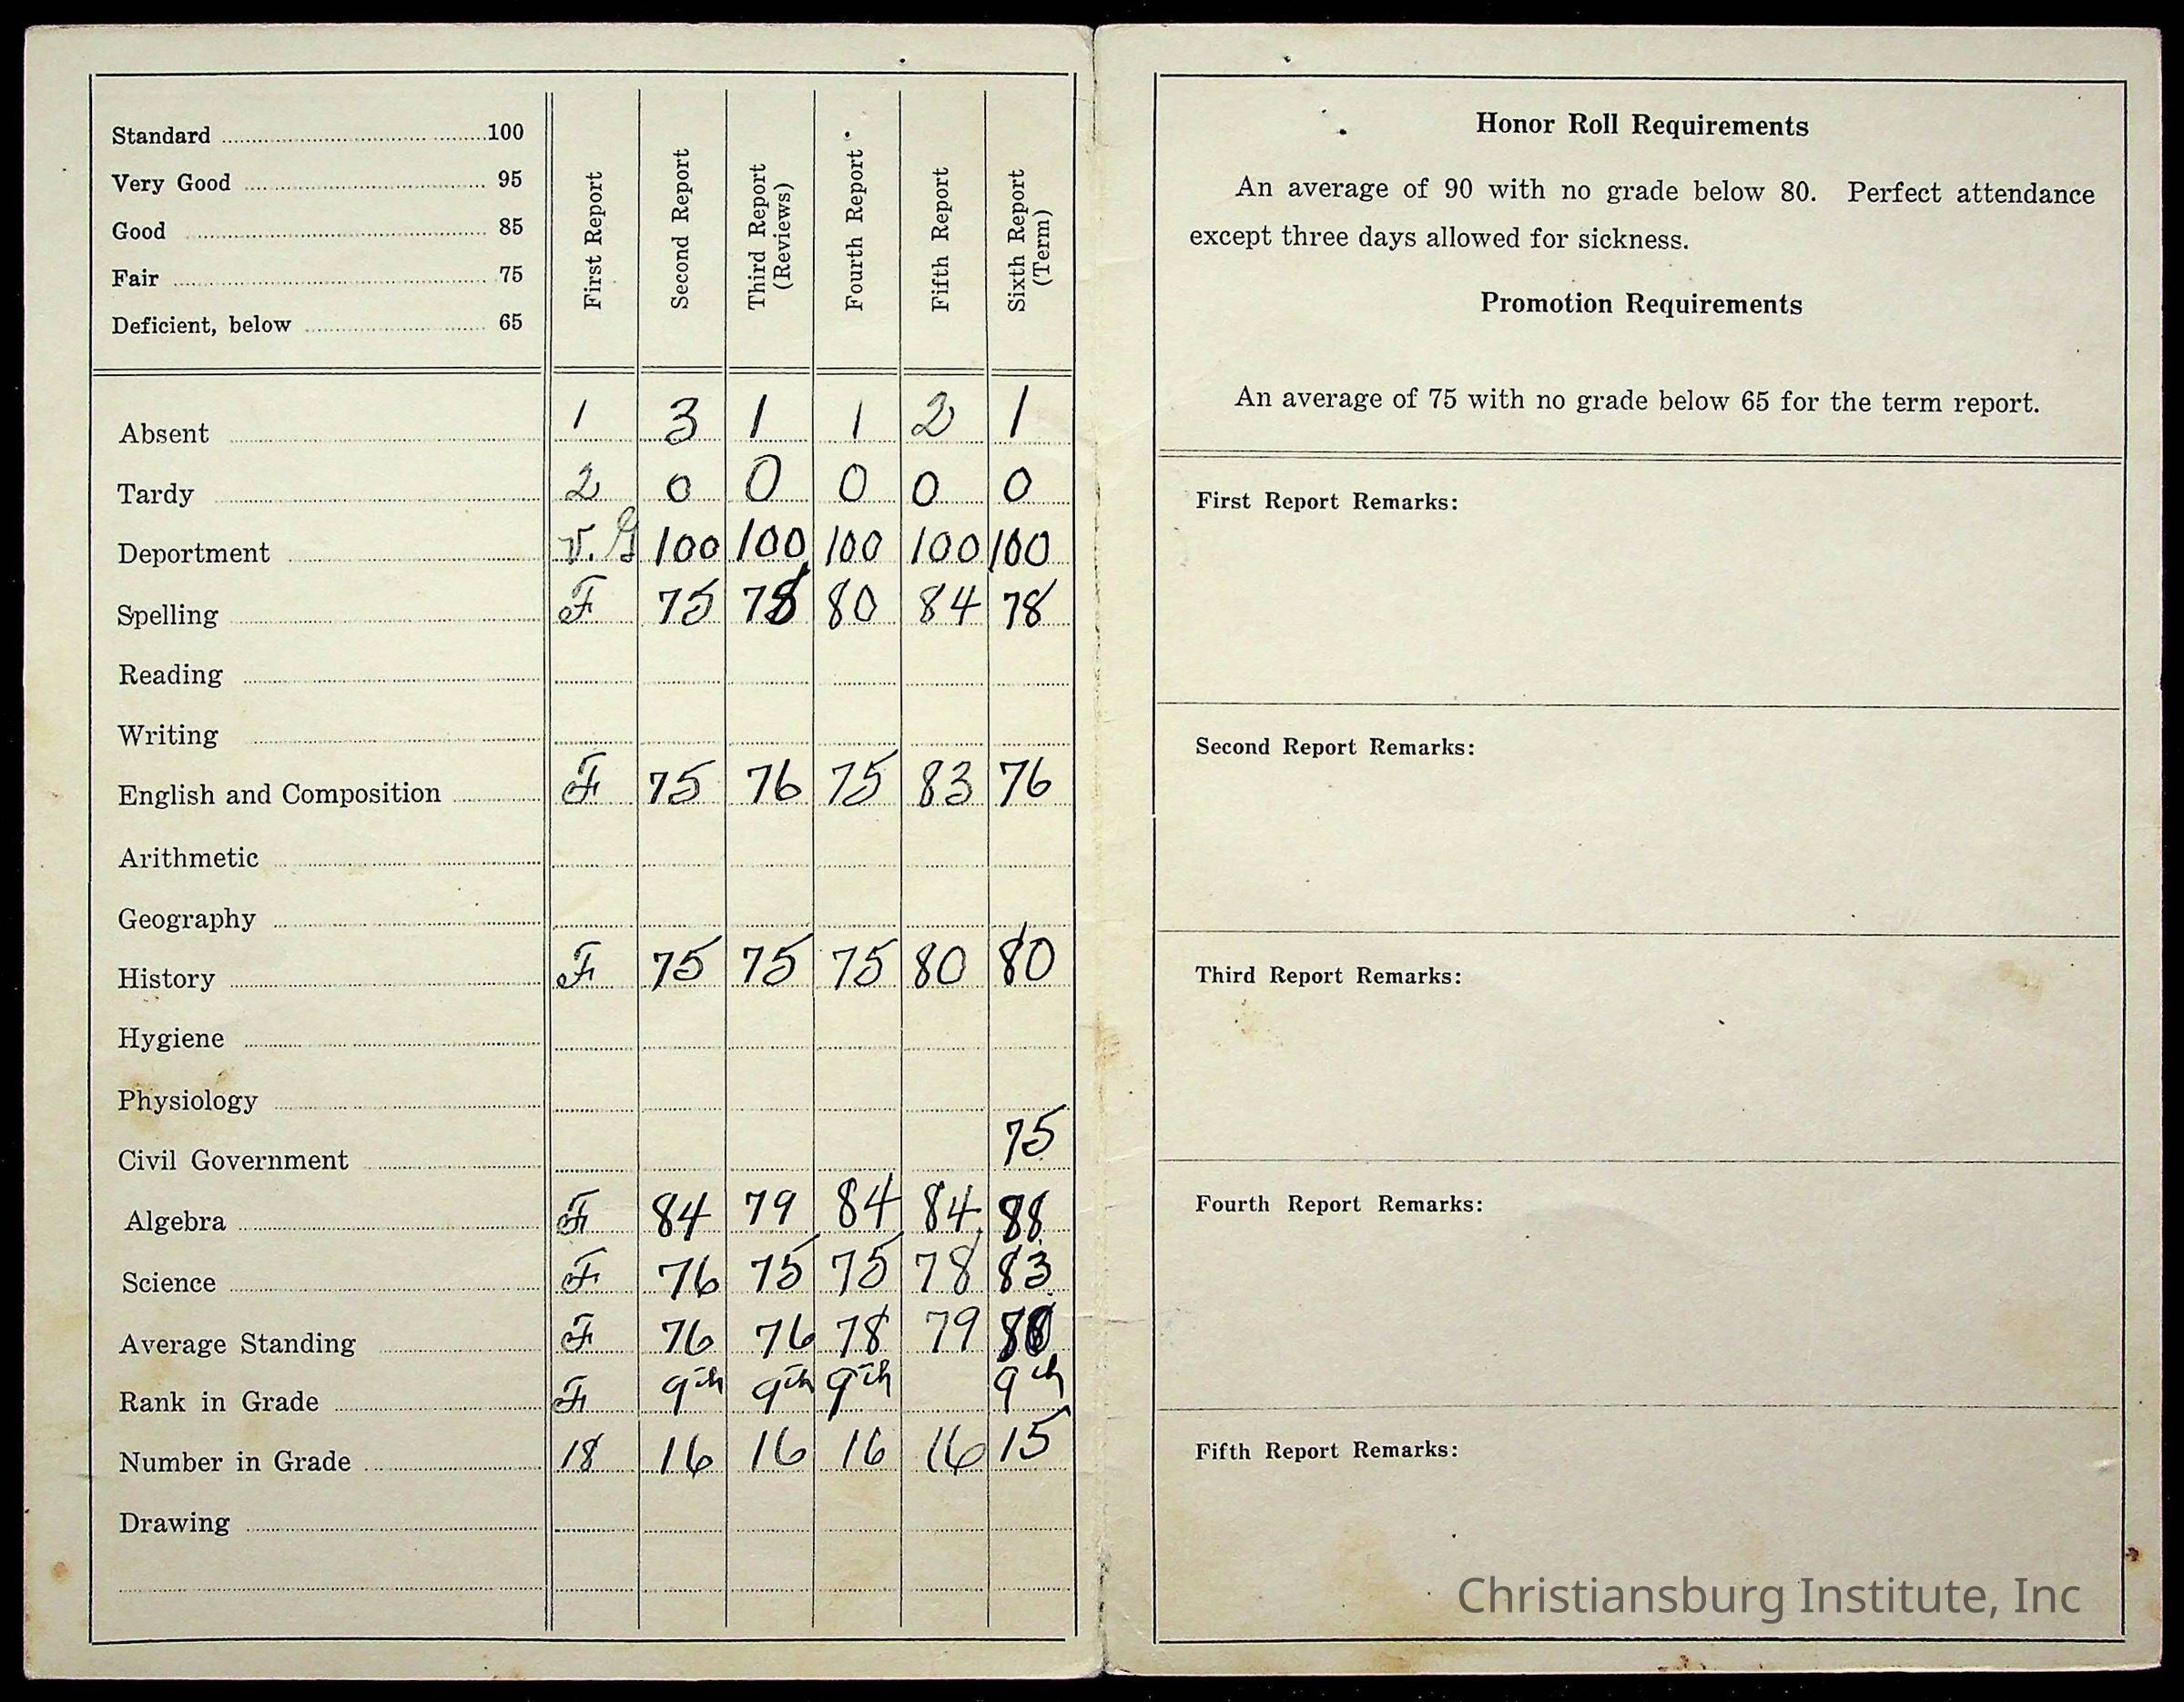 Standard 100
Very Good 95
Good 85
Fair 75
Deficient, below 65
First Report
Second Report
Third Report
(Reviews)
Fourth Report
Fifth Report
Sixth Report
(Term)
Absent 1 3 1 1 2 1
Tardy 2 0 0 0 0 0
Deportment V. G 100 100 100 100 100
Spelling F 75 78 80 84 78
Reading
Writing
English and Composition F 75 76 75 83 76
Arithmetic
Geography
History F 75 75 75 80 80
Hygiene
Physiology
Civil Government 75
Algebra F 84 79 84 84 88
Science F 76 75 75 78 83
Average Standing F 76 76 78 79
Rank in Grade F 9th 9th 9th 9th
Number in Grade 18 16 16 16 16 15
Drawing
Honor Roll Requirements
An average of 90 with no grade below 80. Perfect attendance
except three days allowed for sickness.
Promotion Requirements
An average of 75 with no grade below 65 for the term report.
First Report Remarks:
Second Report Remarks:
Third Report Remarks:
Fourth Report Remarks:
Fifth Report Remarks:
Christiansburg Institute, Inc